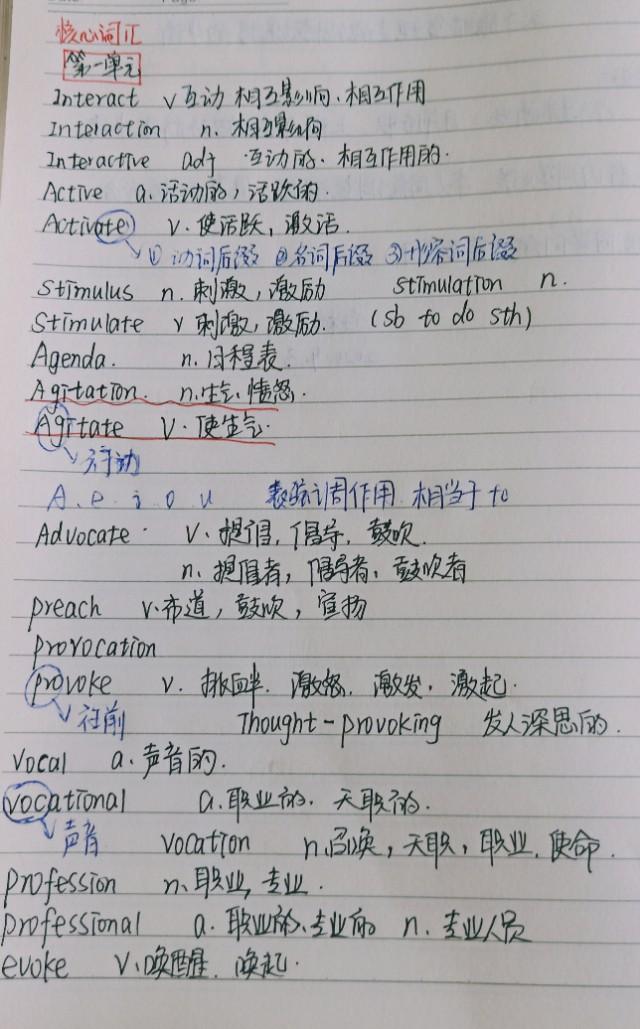 核心词汇
第一单元
Interact v 互动 相互影响、相互作用
Interaction n. 相互影响
Interactive adj 互动的、相互作用的.
Active a. 活动的, 活跃的.
Activate v. 使活跃, 激活.
① 动词后缀 ②名词后缀 ③形容词后缀
stimulus n. 刺激, 激励 stimulation n.
stimulate v 刺激, 激励. (sb to do sth)
Agenda. n. 日程表.
Agitation. n. 生气. 愤怒.
Agitate v. 使生气.
行动
A. e. i. o. u 表强调作用. 相当于 to
Advocate v. 提倡, 倡导, 鼓吹.
n. 提倡者, 倡导者, 鼓吹者
preach v. 布道, 鼓吹, 宣扬
provocation
provoke v. 挑衅. 激怒. 激发. 激起.
往前 Thought-provoking 发人深思的.
vocal a. 声音的.
vocational a. 职业的. 天职的.
声音 vocation n. 召唤, 天职, 职业. 使命.
profession n. 职业, 专业.
professional a. 职业的、专业的 n. 专业人员
evoke v. 唤醒. 唤起.